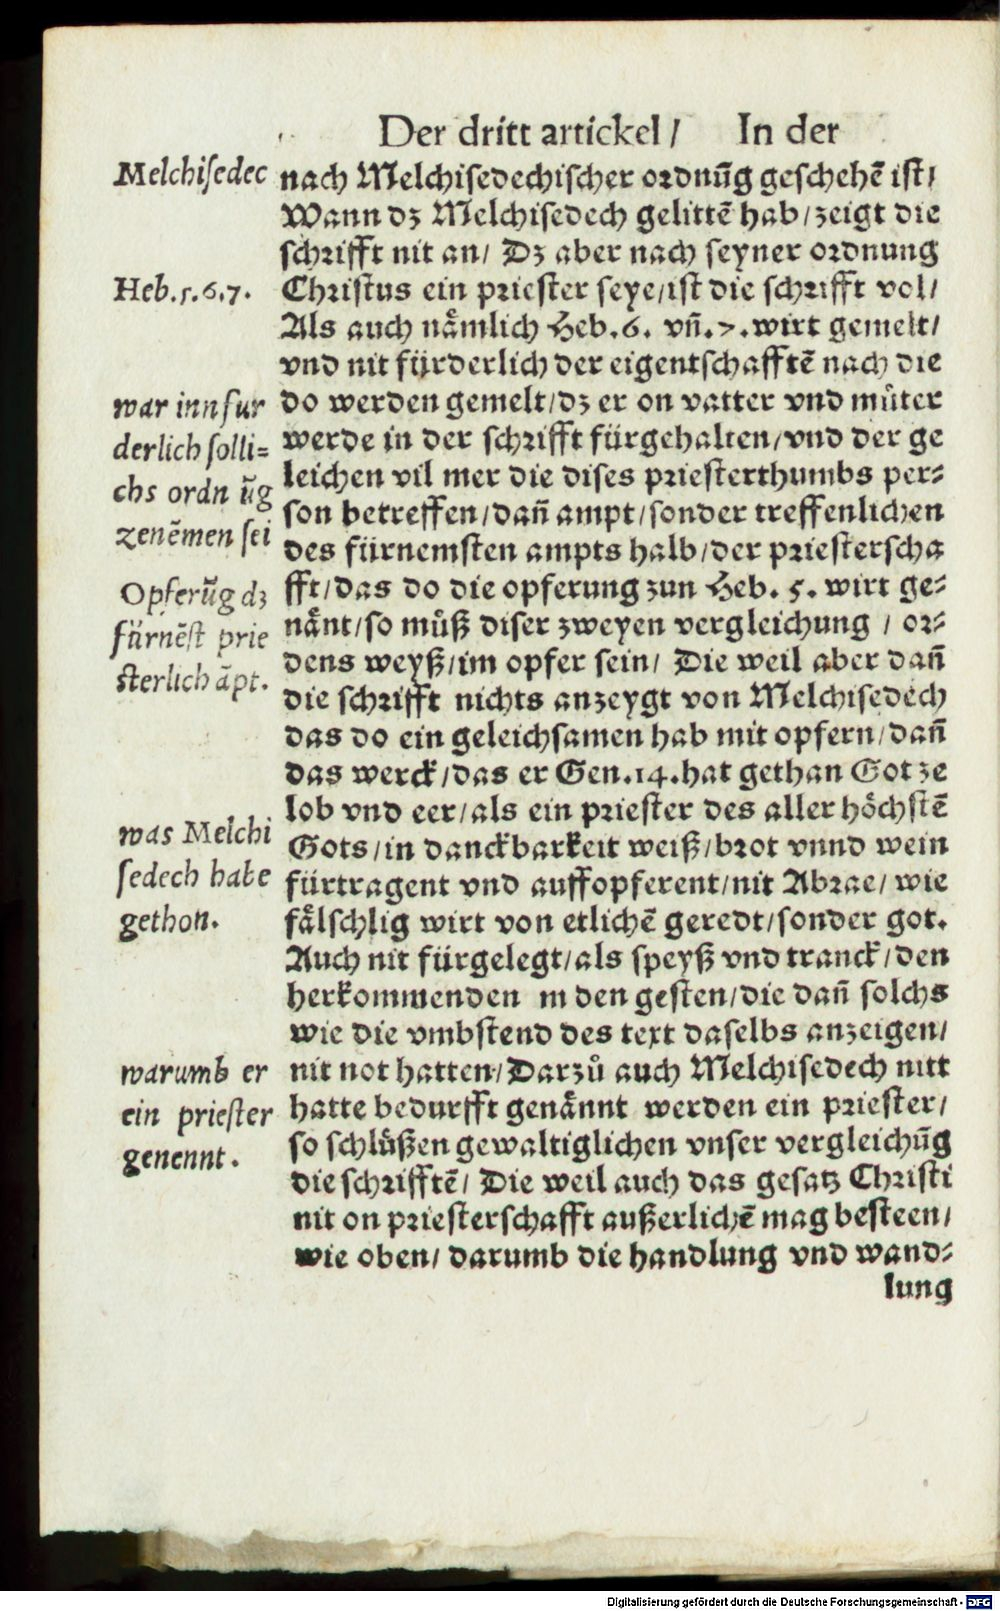 Der dritt artickel / In der
Melchisedec
nach Melchisedechischer ordnūg geschehē ist/
Wann dz Melchisedech gelittē hab/zeigt die
schrifft nit an/ Dz aber nach seyner ordnung
Heb.5.6.7.
Christus ein priester seye/ist die schrifft vol/
Als auch nämlich Heb.6. vn̄.7.wirt gemelt/
vnd nit fürderlich der eigentschafftē nach die
war inn fur
derlich solli=
chs ordn ūg
zenēmen sei
do werden gemelt/dz er on vatter vnd můter
werde in der schrifft fürgehalten/vnd der ge
leichen vil mer die dises priesterthumbs per=
son betreffen/dan̄ ampt/sonder treffenlichen
des fürnemsten ampts halb/der priesterscha
Opferūg dz
fürnēst prie
sterlich āpt.
fft/das do die opferung zun Heb. 5. wirt ge=
nänt/so můß diser zweyen vergleichung / or=
dens weyß/im opfer sein/ Die weil aber dan̄
die schrifft nichts anzeygt von Melchisedech
das do ein geleichsamen hab mit opfern/dan̄
das werck/das er Gen.14.hat gethan Got ze
lob vnd eer/als ein priester des aller höchstē
was Melchi
sedech habe
gethon.
Gots/in danckbarkeit weiß/brot vnnd wein
fürtragent vnd auffopferent/nit Abrae/wie
fälschlig wirt von etlichē geredt/sonder got.
Auch nit fürgelegt/als speyß vnd tranck/den
herkommenden in den gesten/die dan̄ solchs
wie die vmbstend des text daselbs anzeigen/
warumb er
ein priester
genennt.
nit not hatten/Darzů auch Melchisedech nitt
hatte bedurfft genännt werden ein priester/
so schlüßen gewaltiglichen vnser vergleichūg
die schrifftē/ Die weil auch das gesatz Christi
nit on priesterschafft außerlichē mag besteen/
wie oben/ darumb die handlung vnd wand=
lung
Digitalisierung gefördert durch die Deutsche Forschungsgemeinschaft - DFG